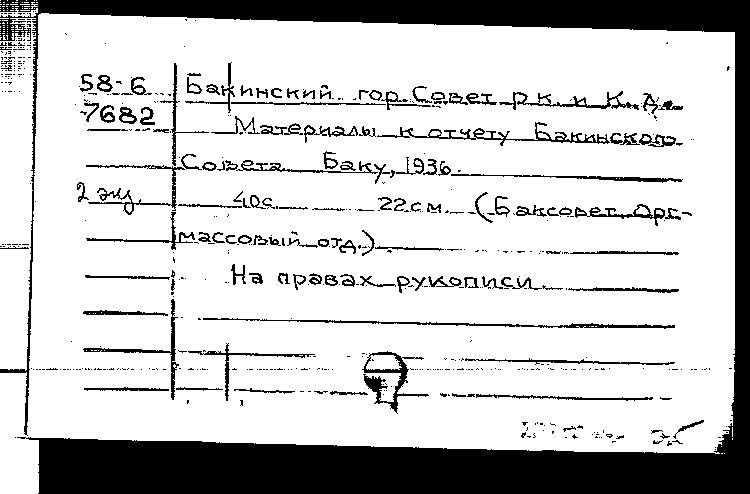 58-6 Бакинский гор. Совет р. к. и К. Д.
7682 Материалы к отчету Бакинского
Совета Баку, 1936.
2 экз. 40с. 22см. (Баксовет Орг-
массовый отд.)
На правах рукописи.